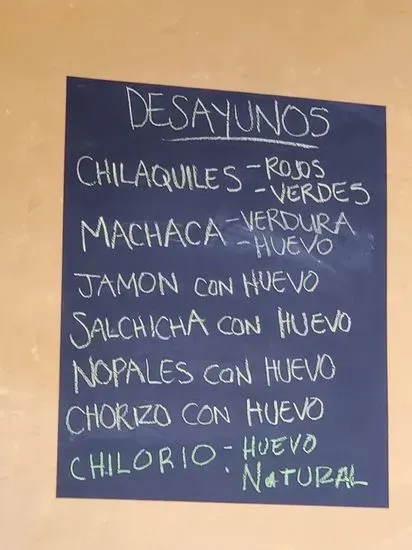 DESAYUNOS
CHILAQUILES - ROJOS
- VERDES
MACHACA - VERDURA
- HUEVO
JAMON CON HUEVO
SALCHICHA CON HUEVO
NOPALES CON HUEVO
CHORIZO CON HUEVO
CHILORIO: HUEVO
NATURAL